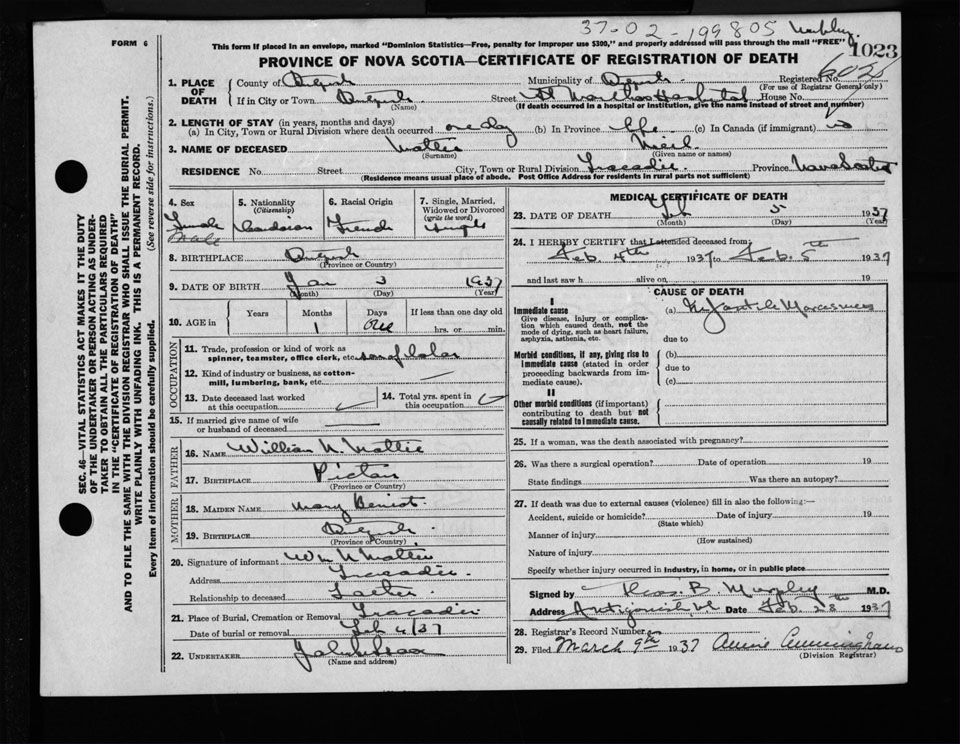 37-02-199805
FORM 6
This form if placed in an envelope, marked "Dominion Statistics—Free, penalty for improper use $300," and properly addressed will pass through the mail "FREE"
1023
PROVINCE OF NOVA SCOTIA—CERTIFICATE OF REGISTRATION OF DEATH
1. PLACE OF DEATH
County of Antigonish Municipality of Antigonish Registered No.
(For use of Registrar General only)
If in City or Town Antigonish Street St Marthas Hospital House No.
(Name) (If death occurred in a hospital or institution, give the name instead of street and number)
2. LENGTH OF STAY (in years, months and days)
(a) In City, Town or Rural Division where death occurred one day (b) In Province life (c) In Canada (if immigrant)
3. NAME OF DECEASED Mattie Neil
(Surname) (Given name or names)
RESIDENCE No. Street City, Town or Rural Division Tracadie Province Nova Scotia
(Residence means usual place of abode. Post Office Address for residents in rural parts not sufficient)
4. Sex
Female
Male
5. Nationality
(Citizenship)
Canadian
6. Racial Origin
French
7. Single, Married, Widowed or Divorced
(write the word)
Single
8. BIRTHPLACE Antigonish
(Province or Country)
9. DATE OF BIRTH Jan 3 1937
(Month) (Day) (Year)
10. AGE in Years Months Days If less than one day old
1 One hrs. or min.
OCCUPATION
11. Trade, profession or kind of work as spinner, teamster, office clerk, etc. son of labor
12. Kind of industry or business, as cotton-mill, lumbering, bank, etc.
13. Date deceased last worked at this occupation
14. Total yrs. spent in this occupation
15. If married give name of wife or husband of deceased
FATHER
16. NAME William N. Mattie
17. BIRTHPLACE Pictou
(Province or Country)
MOTHER
18. MAIDEN NAME Mary Benoit
19. BIRTHPLACE Antigonish
(Province or Country)
20. Signature of informant Wm N Mattie
Address Tracadie
Relationship to deceased Father
21. Place of Burial, Cremation or Removal Tracadie
Date of burial or removal Feb 6/37
22. UNDERTAKER
(Name and address)
MEDICAL CERTIFICATE OF DEATH
23. DATE OF DEATH Feb 5 1937
(Month) (Day) (Year)
24. I HEREBY CERTIFY that I attended deceased from:
Feb. 4th 1937 to Feb. 5th 1937
and last saw h alive on 19
CAUSE OF DEATH
I
Immediate cause
Give disease, injury or complication which caused death, not the mode of dying, such as heart failure, asphyxia, asthenia, etc.
(a) Infantile Marasmus
due to
Morbid conditions, if any, giving rise to immediate cause (stated in order proceeding backwards from immediate cause).
(b)
due to
(c)
II
Other morbid conditions (if important) contributing to death but not causally related to immediate cause.
25. If a woman, was the death associated with pregnancy?
26. Was there a surgical operation? Date of operation 19
State findings Was there an autopsy?
27. If death was due to external causes (violence) fill in also the following:—
Accident, suicide or homicide? Date of injury 19
(State which)
Manner of injury
(How sustained)
Nature of injury
Specify whether injury occurred in industry, in home, or in public place
Signed by Thos. B. Murphy M.D.
Address Antigonish Date Feb. 28th 1937
28. Registrar's Record Number
29. Filed March 9th 1937 Annie Cunningham
(Division Registrar)
SEC. 46—VITAL STATISTICS ACT MAKES IT THE DUTY
OF THE UNDERTAKER OR PERSON ACTING AS UNDER-
TAKER TO OBTAIN ALL THE PARTICULARS REQUIRED
IN THE "CERTIFICATE OF REGISTRATION OF DEATH"
AND TO FILE THE SAME WITH THE DIVISION REGISTRAR WHO SHALL ISSUE THE BURIAL PERMIT.
WRITE PLAINLY WITH UNFADING INK. THIS IS A PERMANENT RECORD.
Every item of information should be carefully supplied. (See reverse side for instructions.)